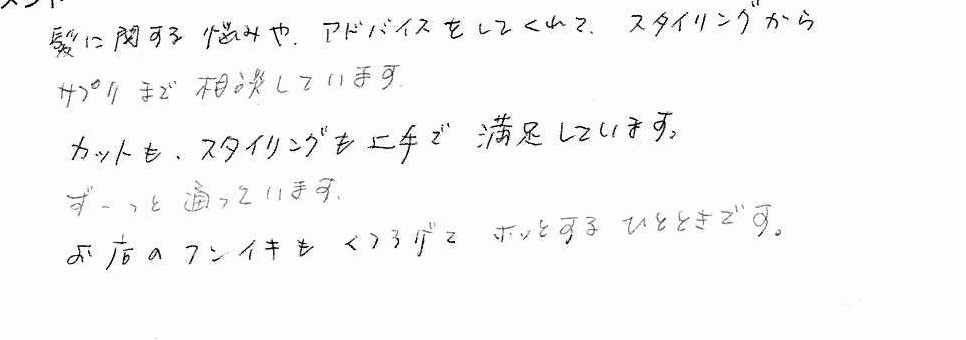 メント
髪に関する悩みや、アドバイスをしてくれて、スタイリングから
サプリまで相談しています。
カットも、スタイリングも上手で満足しています。
ずーっと通っています。
お店のフンイキもくつろげてホッとするひとときです。